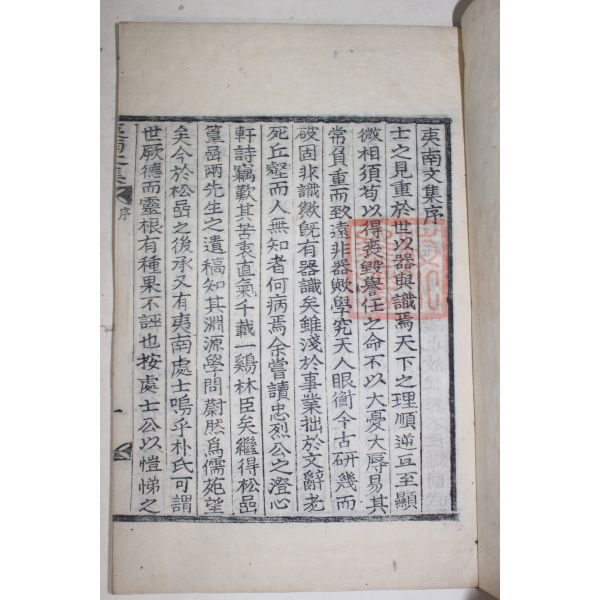 夷南文集序
士之見重於世以器與識焉天下之理順逆互至顯
微相須苟以得喪毀譽任之命不以大憂大辱易其
常負重而致遠非器歟學究天人眼衡今古研幾而
破固非識歟旣有器識矣雖淺於事業拙於文辭老
死丘壑而人無知者何病焉余嘗讀忠烈公之澄心
軒詩竊歎其苦衷直氣千載一鷄林臣矣繼得松嵒
篁嵒兩先生之遺稿知其淵源學問蔚然爲儒苑望
矣今於松嵒之後承又有夷南處士嗚乎朴氏可謂
世厥德而靈根有種果不誣也按處士公以愷悌之
夷南文集
序